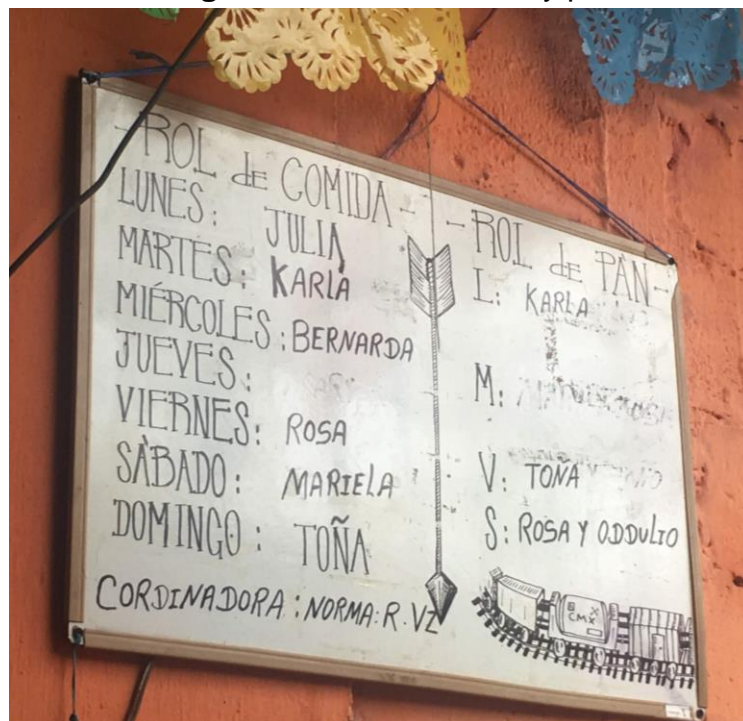 -ROL de COMIDA-
LUNES: JULIA
MARTES: KARLA
MIÉRCOLES: BERNARDA
JUEVES:
VIERNES: ROSA
SÁBADO: MARIELA
DOMINGO: TOÑA
CORDINADORA: NORMA: R. VZ
-ROL de PAN-
L: KARLA
M:
V: TOÑA
S: ROSA Y ODDULIO
CMX